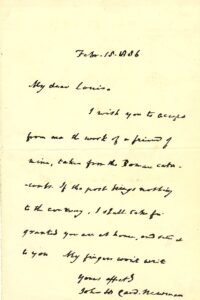 Febr. 18. 1886
My dear Louis.
I wish you to accept
from me the work of a friend of
mine, taken from the Roman cata-
combs. If the post brings nothing
to the contrary, I shall take for
granted you are at home, and send it
to you My fingers won't write
Yours affectly
John H Card. Newman